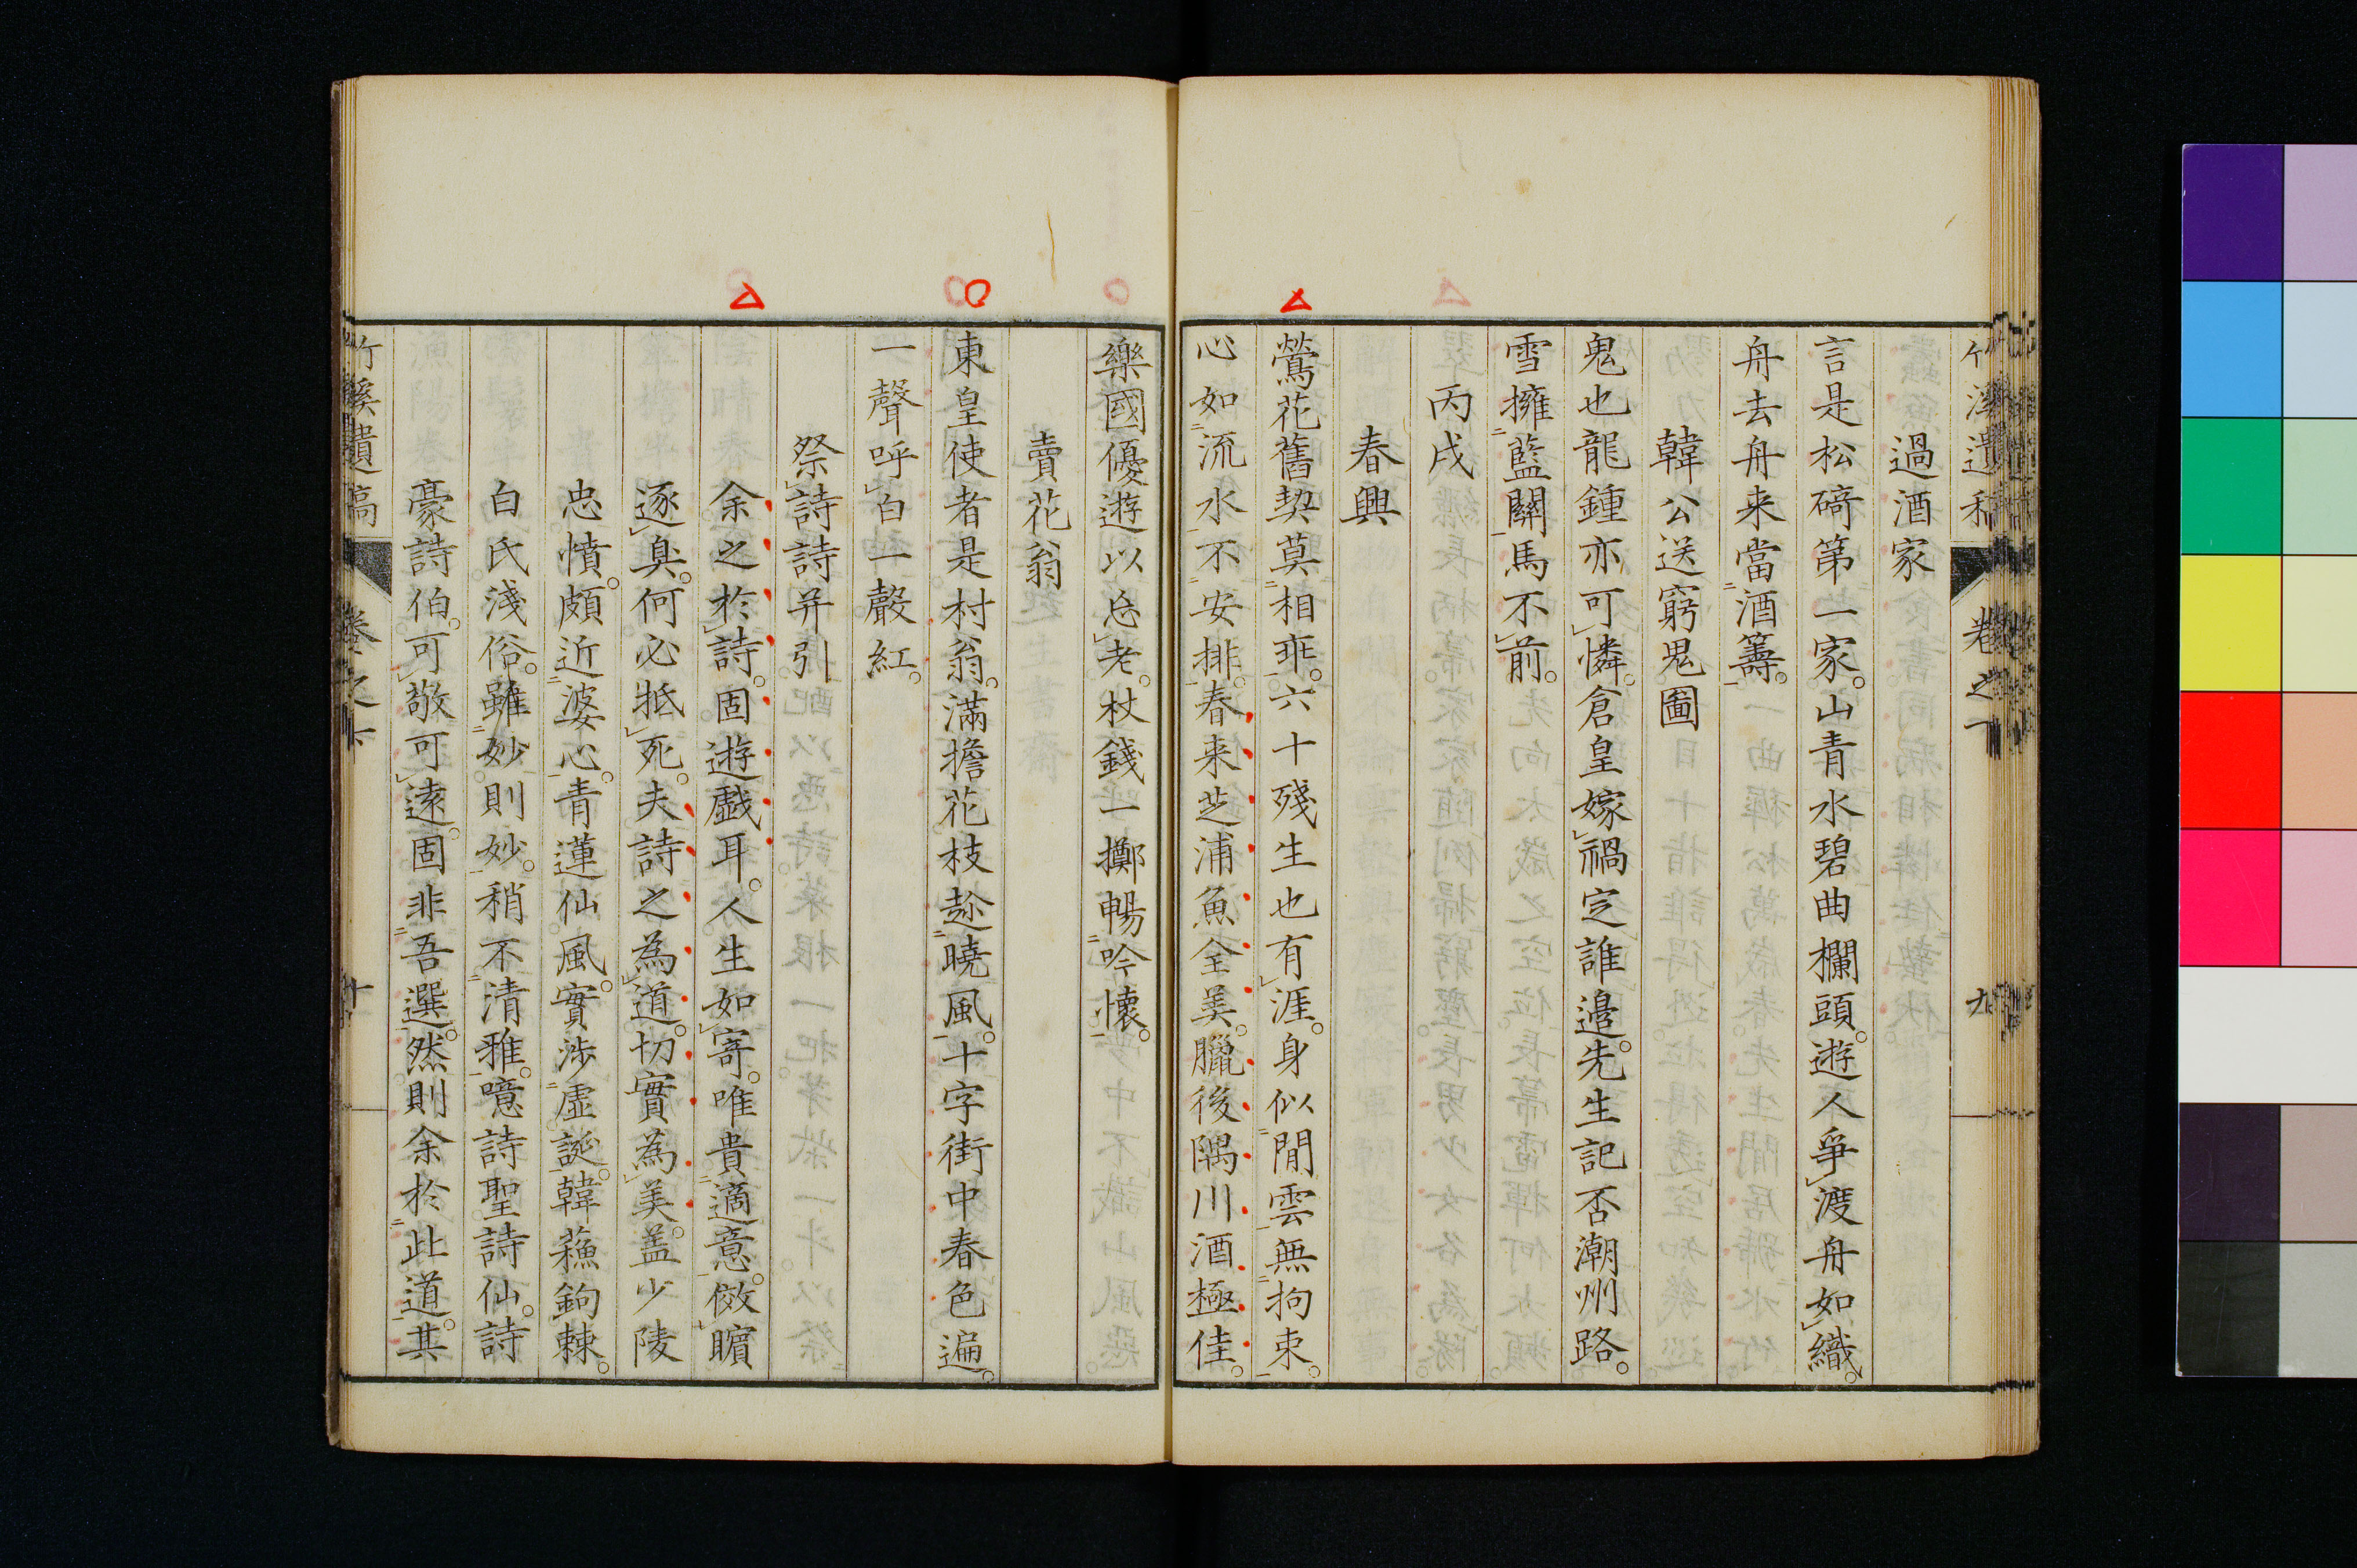 過酒家
言是松碕第一家。山青水碧曲欄頭。遊人爭渡舟如織。
舟去舟来當酒籌。
韓公送窮鬼圖
鬼也龍鍾亦可憐。倉皇嫁禍定誰邉。先生記否潮州路。
雪擁藍關馬不前。
丙戌
春興
鶯花舊契莫相乖。六十殘生也有涯。身似閒雲無拘束。
心如流水不安排。春来芝浦魚全美。臘後隅川酒極佳。
樂國優遊以忘老。杖錢一擲暢吟懷。
賣花翁
東皇使者是村翁。滿擔花枝趁曉風。十字街中春色遍。
一聲呼白一聲紅。
祭詩詩并引
余之於詩。固遊戲耳。人生如寄。唯貴適意。傚矉
逐臭。何必抵死。夫詩之為道。切實為美。盖少陵
忠憤。頗近婆心。青蓮仙風。實涉虛誕。韓蘓鉤棘。
白氏淺俗。雖妙則妙。稍不清雅。噫詩聖詩仙。詩
豪詩伯。可敬可遠。固非吾選。然則余於此道。其
竹溪遺稿 卷之下 十